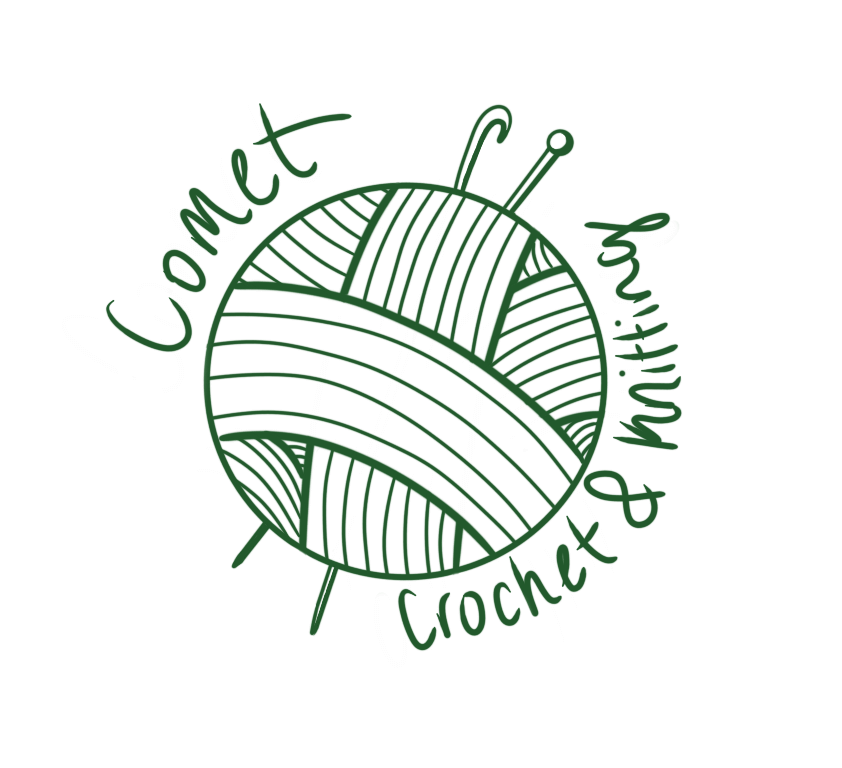 Comet
Crochet & Knitting